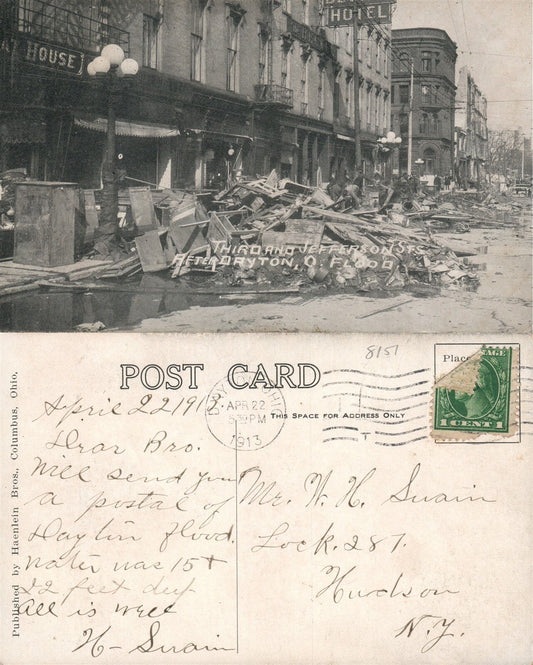 HOTEL
HOUSE
THIRD AND JEFFERSON STS.
AFTER DAYTON, O. FLOOD
Published by Haenlein Bros., Columbus, Ohio.
POST CARD
8151
Place
THIS SPACE FOR ADDRESS ONLY
APR 22
PM
1913
AGE
1 CENT 1
April 22 1913
Dear Bro.
Will send you
a postal of
Dayton flood.
Water was 15 +
22 feet deep
All is well
H- Swain
Mr. W. H. Swain
Lock. 287.
Hudson
N.Y.